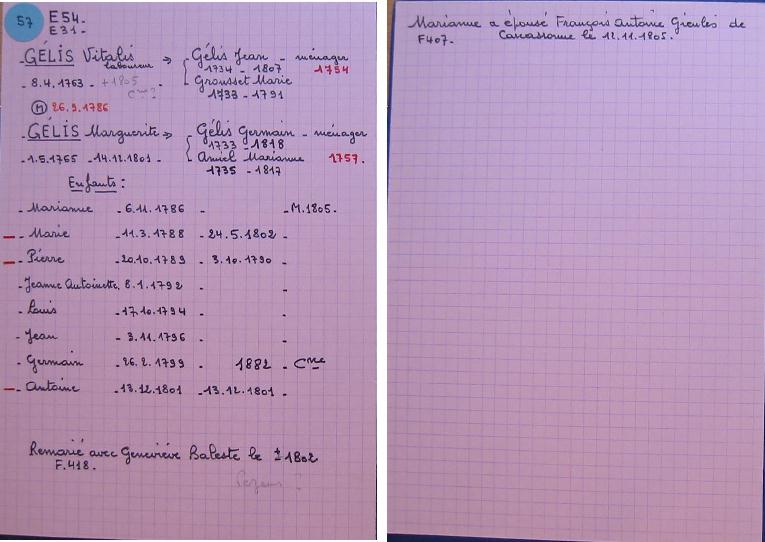 57 E54.
E31.
- GÉLIS Vitalis → Gélis Jean - ménager
laboureur 1734 - 1807 1754
- 8.4.1763 - +1805 - Grousset Marie
Cne? 1733 - 1791
M 26.9.1786
- GÉLIS Marguerite → Gélis Germain - ménager
1733 - 1818
- 1.5.1765 - 14.12.1801 - Amiel Marianne 1757.
1735 - 1817
Enfants :
- Marianne - 6.11.1786 - - M.1805.
- Marie - 11.3.1788 - 24.5.1802 -
- Pierre - 20.10.1789 - 3.10.1790 -
- Jeanne Antoinette. 8.1.1792 - -
- Louis - 17.10.1794 - -
- Jean - 3.11.1796 - -
- Germain - 26.2.1799 - 1882 - Cne
- Antoine - 13.12.1801 - 13.12.1801 -
Remarié avec Geneviève Baleste le ± 1802
F.418.
Marianne a épousé François Antoine Gieules de
F407. Carcassonne le 12.11.1805.